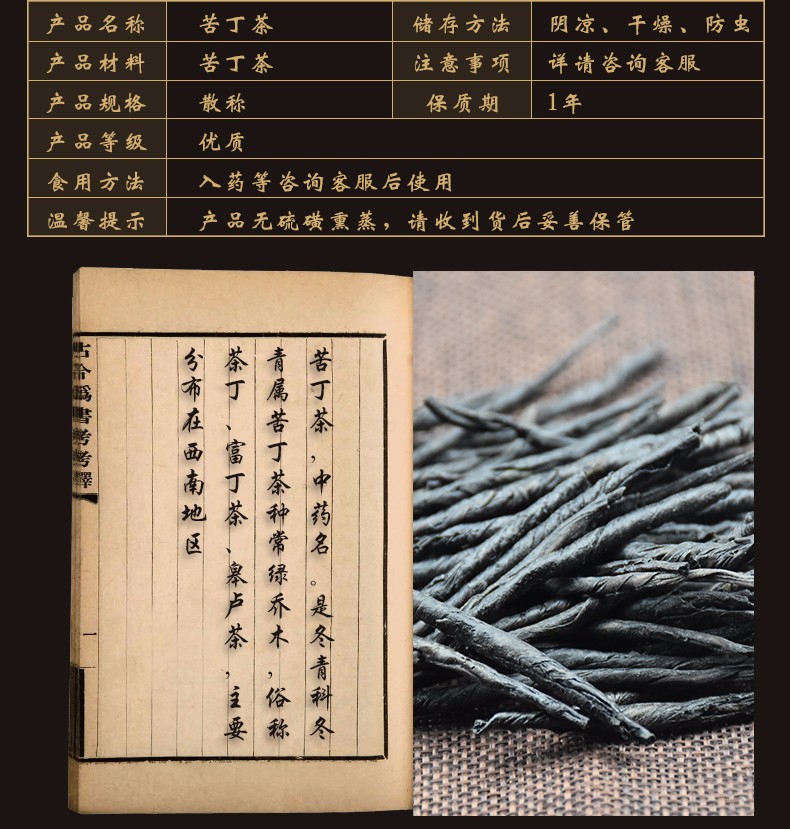 产品名称 苦丁茶 储存方法 阴凉、干燥、防虫
产品材料 苦丁茶 注意事项 详请咨询客服
产品规格 散称 保质期 1年
产品等级 优质
食用方法 入药等咨询客服后使用
温馨提示 产品无硫磺熏蒸，请收到货后妥善保管
苦丁茶，中药名。是冬青科冬
青属苦丁茶种常绿乔木，俗称
茶丁、富丁茶、皋卢茶，主要
分布在西南地区
古今伪書考考釋
一